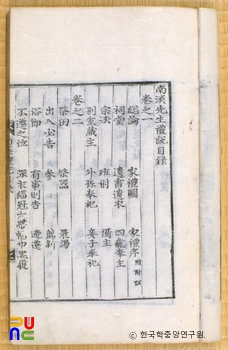 南溪先生禮說目錄
卷之一
總論 家禮圖 家禮序
祠堂 遺書遺衣 四龕奉主
宗法 班祔 櫝主
別室藏主 外孫奉祀 妾子奉祀
卷之二
祭田 祭器 晨謁
出入必告 參 薦新
俗節 有事則告
不遷之位 深衣幅巾大帶緇巾黑履
PUNC
© 한국학중앙연구원